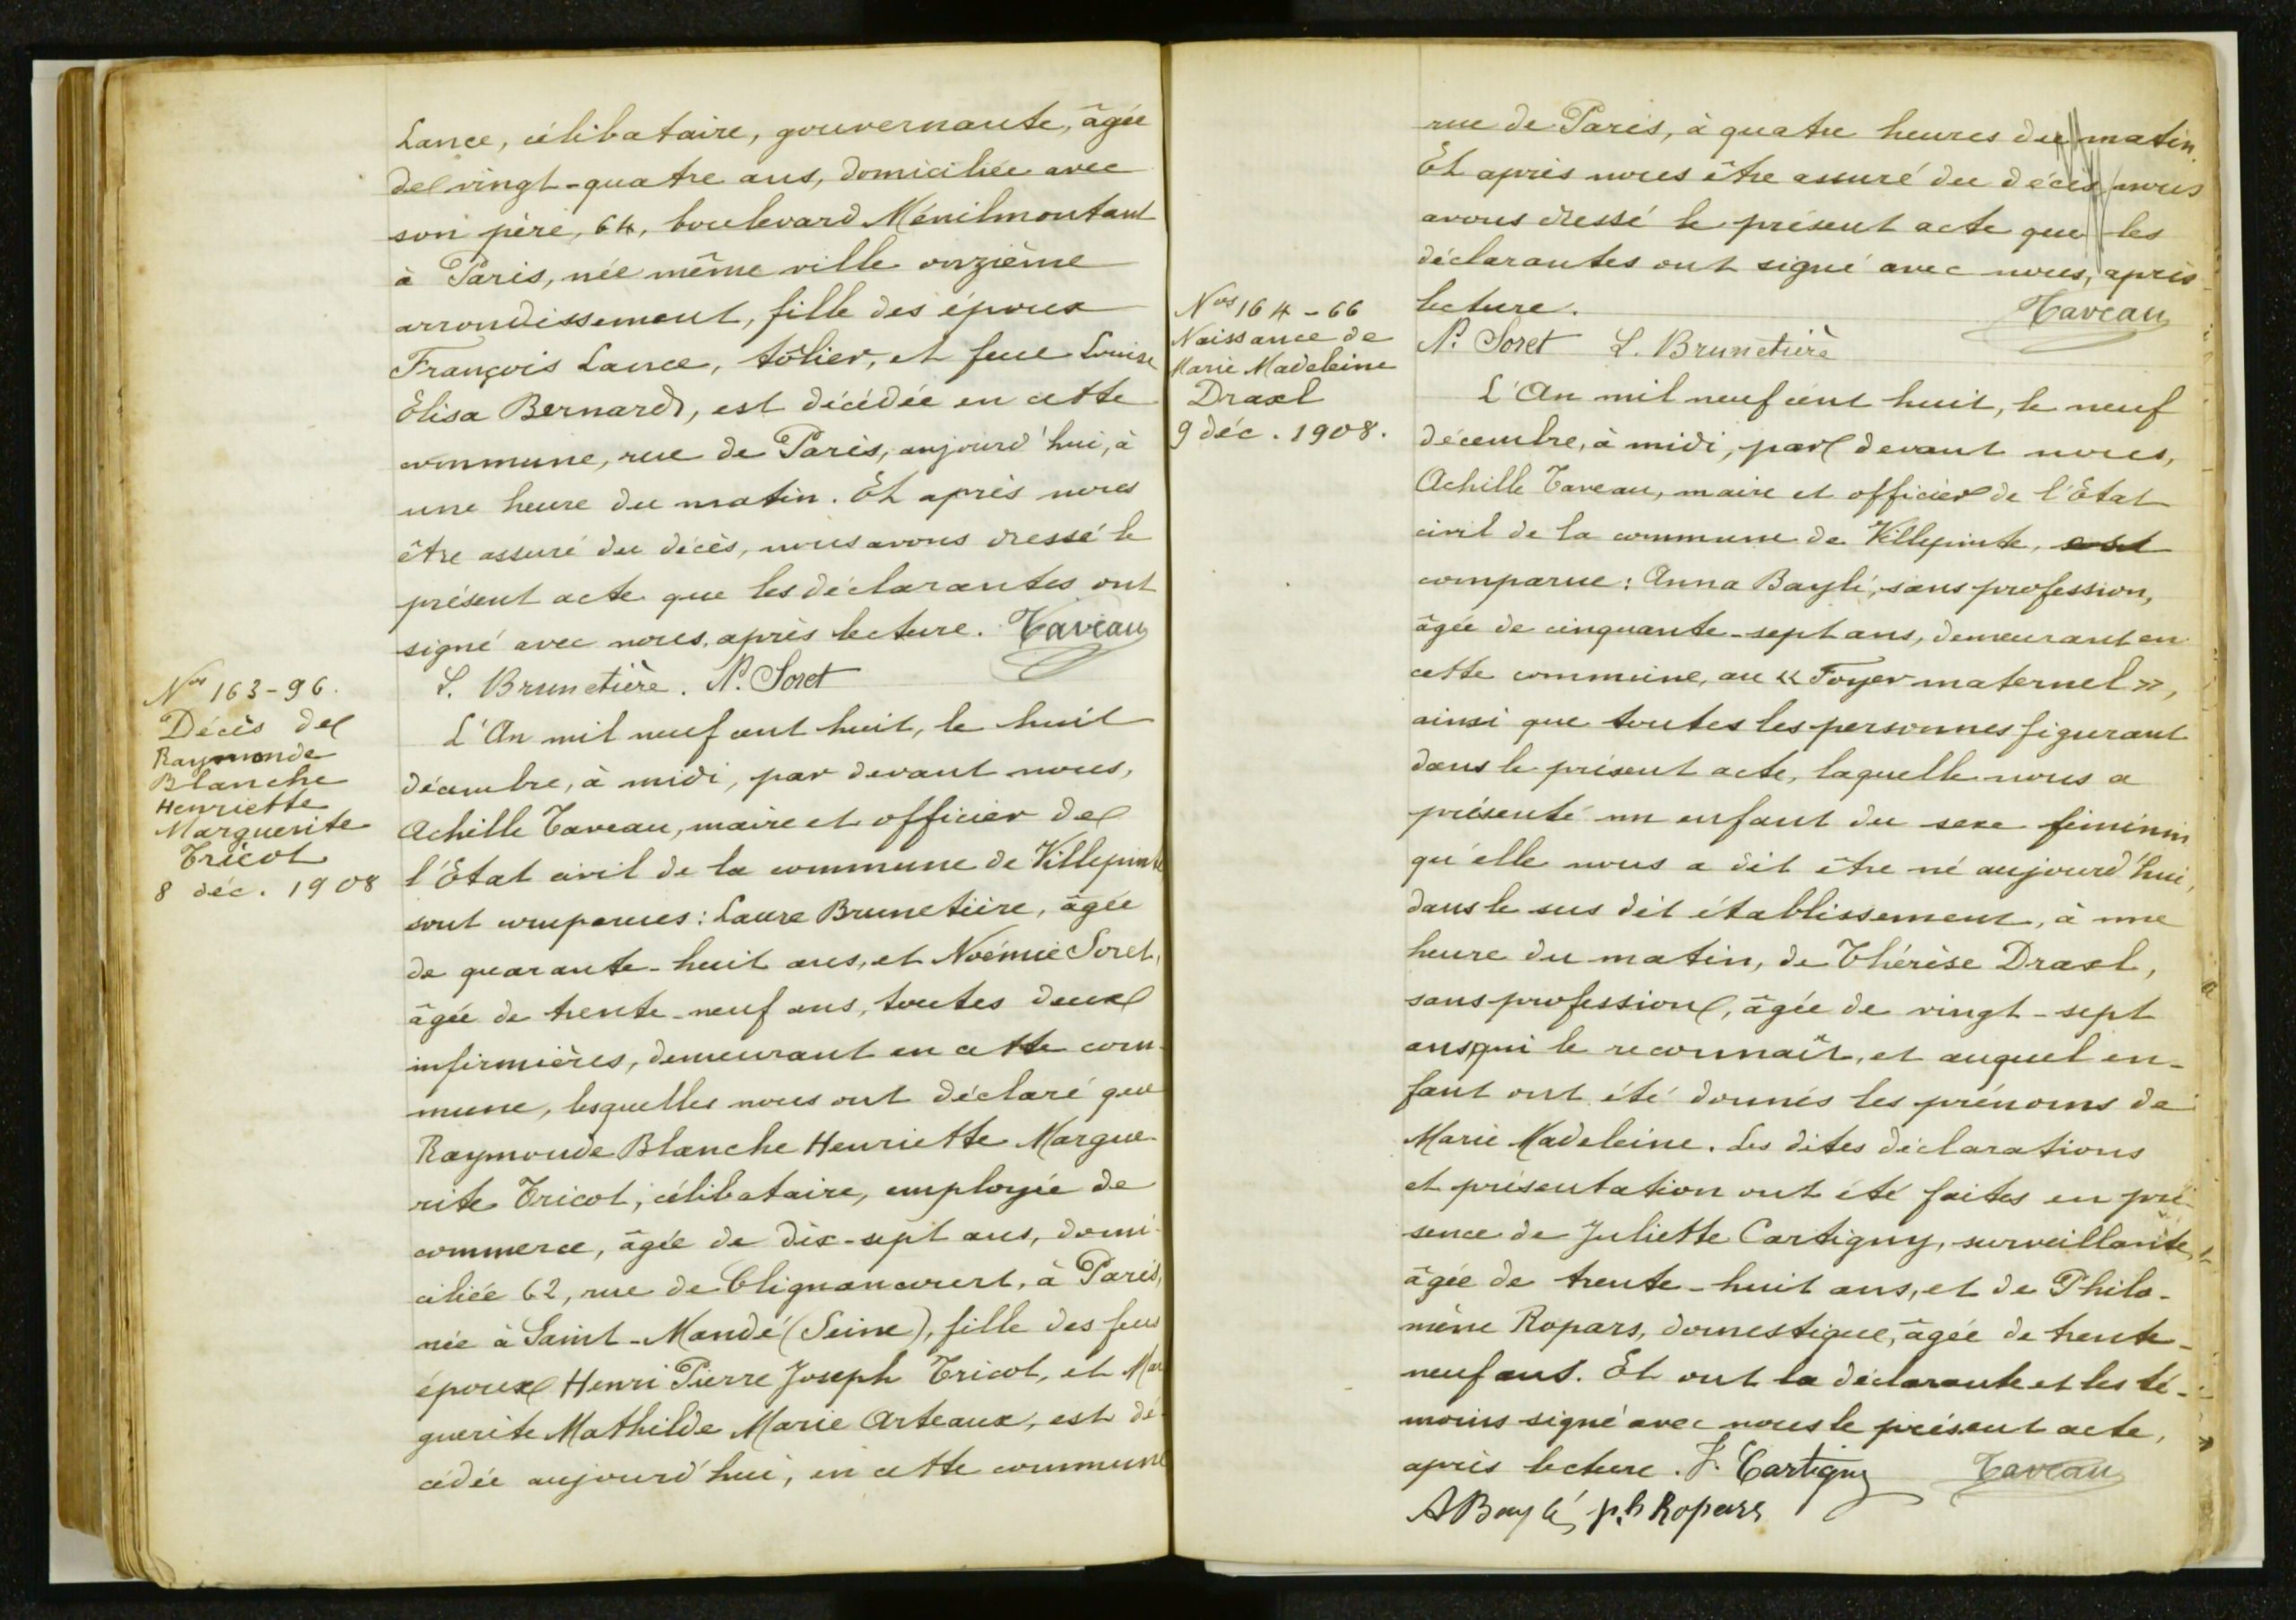 Lance, célibataire, gouvernante, âgée
de vingt-quatre ans, domiciliée avec
son père, 64, boulevard Ménilmontant
à Paris, née même ville onzième
arrondissement, fille des époux
François Lance, tôlier, et feue Louise
Elisa Bernard, est décédée en cette
commune, rue de Paris, aujourd'hui, à
une heure du matin. Et après nous
être assuré du décès, nous avons dressé le
présent acte que les déclarantes ont
signé avec nous, après lecture. Taveau
L. Brunetière. N. Soret
Nos 163-96.
Décès de
Raymonde
Blanche
Henriette
Marguerite
Tricot
8 déc. 1908
L'An mil neuf cent huit, le huit
décembre, à midi, par devant nous,
Achille Taveau, maire et officier de
l'Etat civil de la commune de Villepinte
sont comparues : Laure Brunetière, âgée
de quarante-huit ans, et Noémie Soret,
âgée de trente-neuf ans, toutes deux
infirmières, demeurant en cette com-
mune, lesquelles nous ont déclaré que
Raymonde Blanche Henriette Margue-
rite Tricot, célibataire, employée de
commerce, âgée de dix-sept ans, domi-
ciliée 62, rue de Clignancourt, à Paris,
née à Saint-Mandé (Seine), fille des feus
époux Henri Pierre Joseph Tricot, et Mar
guerite Mathilde Marie Arteaux, est dé-
cédée aujourd'hui, en cette commune
rue de Paris, à quatre heures du matin.
Et après nous être assuré du décès, nous
avons dressé le présent acte que les
déclarantes ont signé avec nous, après
lecture. Taveau
N. Soret L. Brunetière
Nos 164-66
Naissance de
Marie Madeleine
Draxl
9 déc. 1908.
L'An mil neuf cent huit, le neuf
décembre, à midi, par devant nous,
Achille Taveau, maire et officier de l'Etat
civil de la commune de Villepinte, est
comparue : Anna Baylé, sans profession,
âgée de cinquante-sept ans, demeurant en
cette commune, au « Foyer maternel »,
ainsi que toutes les personnes figurant
dans le présent acte, laquelle nous a
présenté un enfant du sexe féminin
qu'elle nous a dit être né aujourd'hui,
dans le sus dit établissement, à une
heure du matin, de Thérèse Draxl,
sans profession, âgée de vingt-sept
ans, qui le reconnaît, et auquel en-
fant ont été donnés les prénoms de
Marie Madeleine. Les dites déclarations
et présentation ont été faites en pré-
sence de Juliette Cartigny, surveillante,
âgée de trente-huit ans, et de Philo-
mène Ropars, domestique, âgée de trente-
neuf ans. Et ont la déclarante et les té-
moins signé avec nous le présent acte,
après lecture. J. Cartigny Taveau
A Baylé ph Ropars